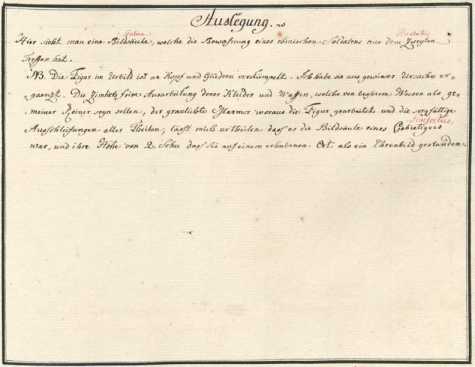 Auslegung.
Statua Hastatis
Hier siehet man eine Bildsäule, welche die Bewafnung eines römischen Soldatens aus dem Zweyten
Treffen hat.
NB. Die Figur im Urbild ist an Kopf und Gliedern verstümmelt. Ich habe sie aus gewisser Ursache er-
gaenzt. Die feine Ausarbeitung derer Kleider und Waffen, welche von beßeren Wesen als ge-
meiner Reiner seyn sollen, der Marmor woraus die Figur gearbeitet und die sorgfältige
Ausschleifungen aller Theilen, laßt mich urtheilen daß es die Bildsäule eines
war, und ihre Höhe von 2. Schu daß sie auf einem erhabenen Ort als ein Ehrenbild gestanden.